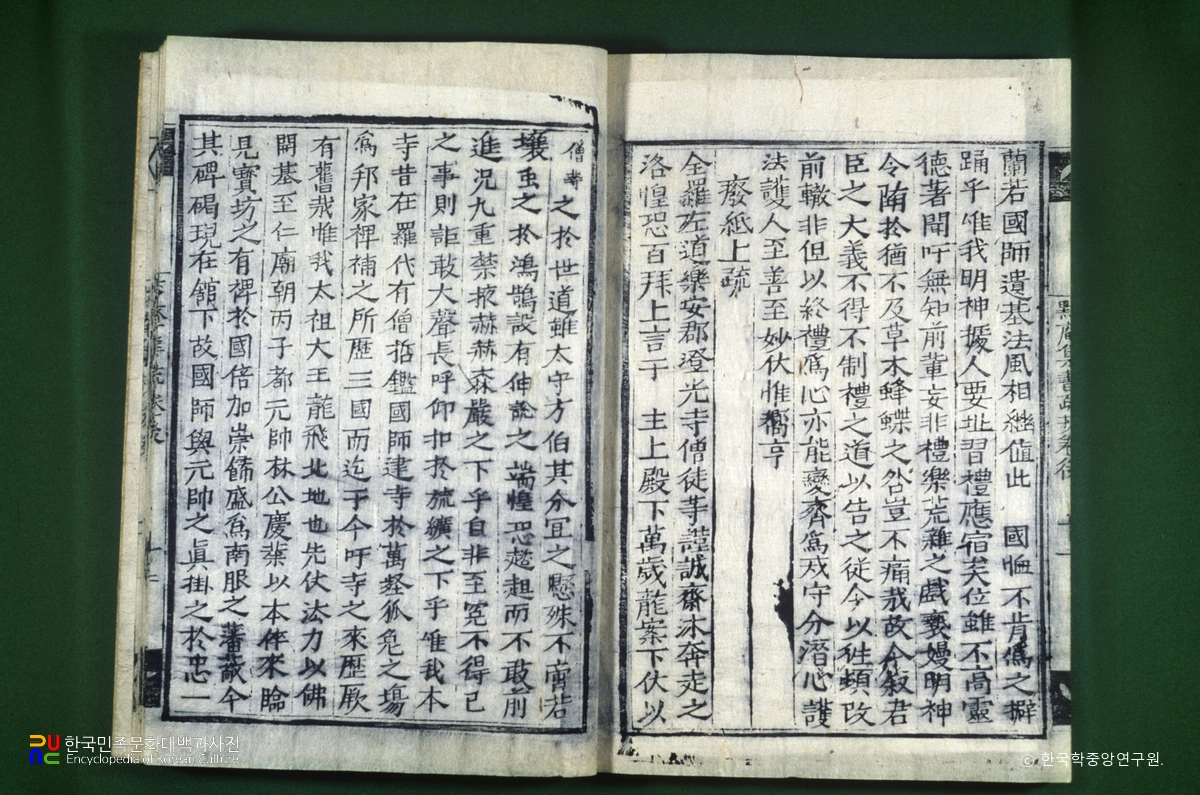 蘭若國師遺基法風相繼値此 國恤不肯爲之擗
踊乎惟我明神援人要址習禮應宿矣位雖不高靈
德著聞吁無知前輩妄非禮樂荒雜之戱褻嫚明神
令陏於猶不及草木蜂蝶之咎豈不痛哉故今叙君
臣之大義不得不制禮之道以告之從今以徃頓改
前轍非但以終禮爲心亦能變齊爲戒守分潛心護
法護人至善至妙伏惟嚮亨
癈紙上疏
全羅左道樂安郡澄光寺僧徒等謹誠齋沐奔走之
洛惶恐百拜上言于 主上殿下萬歲龍案下伏以
僧寺之於世道雖太守方伯其分冝之懸殊不啻若
壤虫之於鴻鵠設有伸訟之端惶恐趑趄而不敢前
進况九重禁掖赫赫森嚴之下乎自非至冤不得已
之事則詎敢大聲長呼仰扣於旒纊之下乎惟我本
寺昔在羅代有僧哲鑑國師建寺於萬壑狐兔之塲
爲邦家裨補之所歷三國而迄于今吁寺之來歷厥
有舊哉惟我太祖大王龍飛北地也先伏法力以佛
開基至仁廟朝丙子都元帥林公慶業以本伴來臨
見寶坊之有裨於國倍加崇餙盛爲南服之蕃蔽今
其碑碣現在舘下故國師與元帥之眞掛之於忠一
PURC 한국민족문화대백과사전
Encyclopedia of Korean Culture
© 한국학중앙연구원.